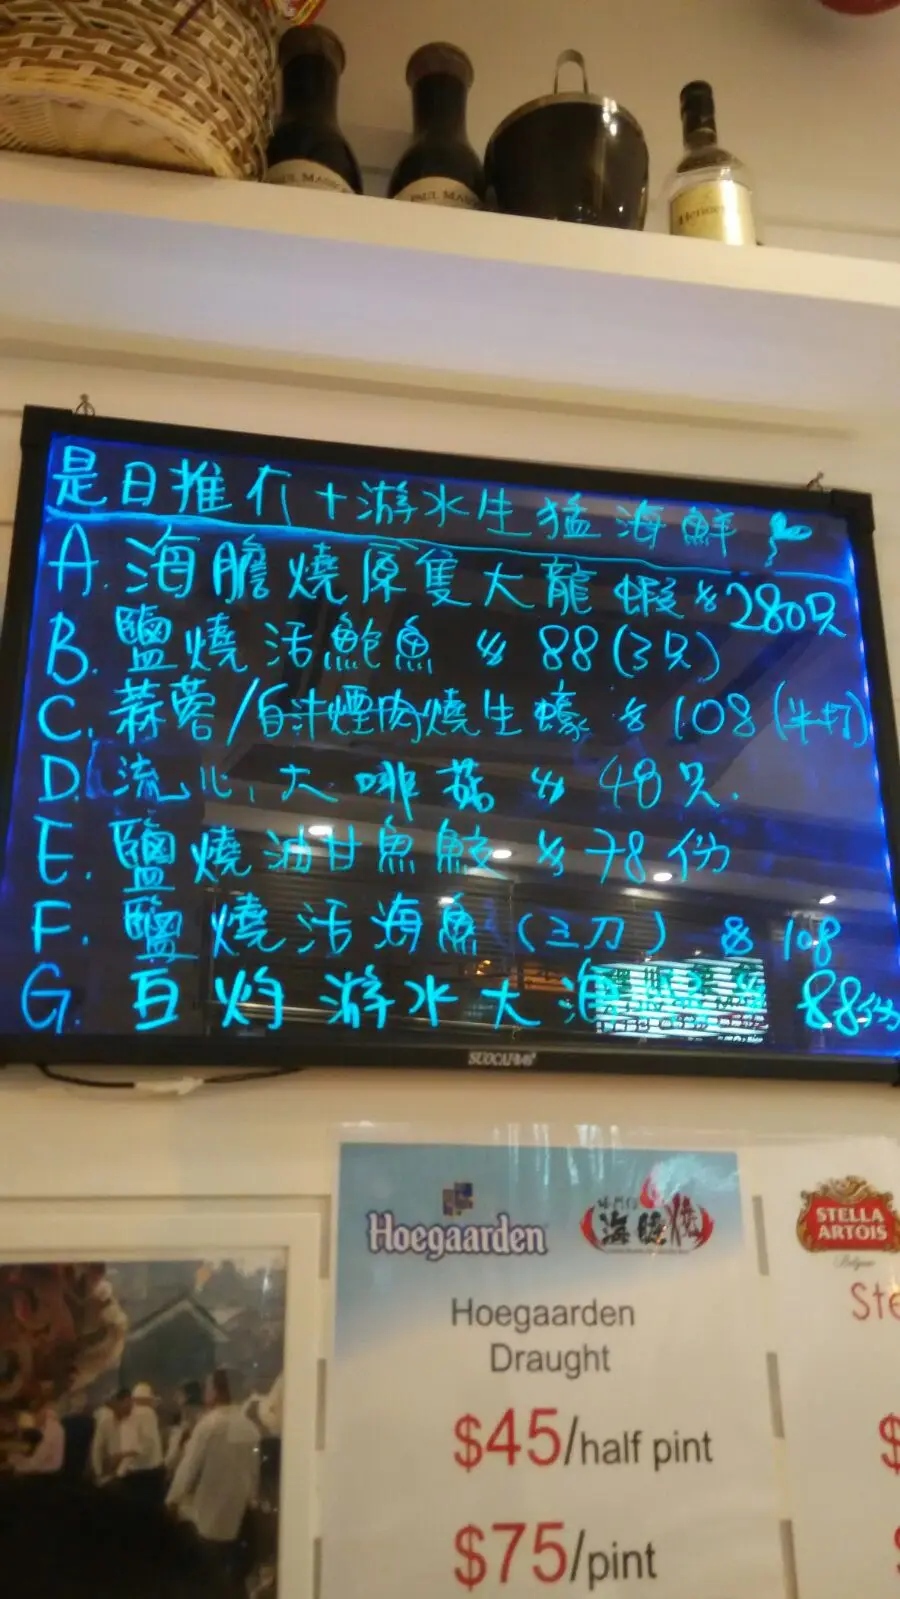 PAUL MASSON
PAUL MASSON
Hennessy
是日推介+游水生猛海鮮
A. 海膽燒原隻大龍蝦 $280只
B. 鹽燒活鮑魚 $88(3只)
C. 蒜蓉/白汁煙肉燒生蠔 $108(半打)
D. 流心大啡菇 $48只.
E. 鹽燒油甘魚鮫 $78份
F. 鹽燒活海魚(三刀) $108
G. 白灼游水大海 88份
Hoegaarden
海膽燒
STELLA
ARTOIS
Belgium
Hoegaarden
Draught
$45/half pint
$75/pint
Ste
$